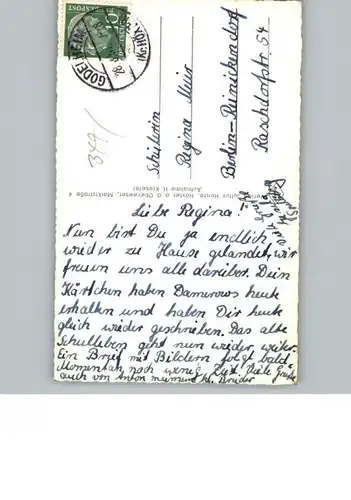 10
GODELHEIM
(Kr. HÖX
349/
Schülerin
Regina Meier
Berlin-Reinickendorf
Raschdorfstr. 54
Julius Henze, Höxter a. d. Oberweser, Marktstraße 4
Aufnahme H.
Liebe Regina!
Nun bist Du ja endlich
wieder zu Hause gelandet, wir
freuen uns alle darüber. Dein
Kärtchen haben Damerows heute
erhalten und haben Dir heute
gleich wieder geschrieben. Das alte
Schulleben geht nun wieder weiter.
Ein Brief mit Bildern folgt bald
Momentan noch wenig Zeit. Viele Grüße
auch von Anton meinem kl. Bruder